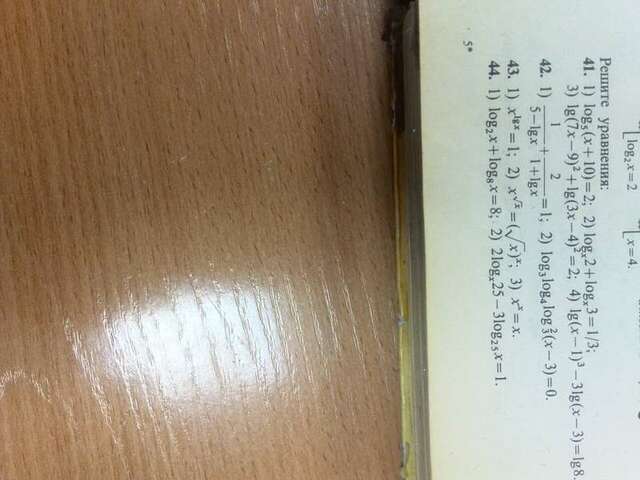 log₂x=2
x=4.
Решите уравнения:
41. 1) log₅(x+10)=2; 2) logₓ2+logₓ3=1/3;
3) lg(7x−9)²+lg(3x−4)²=2; 4) lg(x−1)³−3lg(x−3)=lg8.
42. 1) 1/(5−lgx) + 2/(1+lgx) =1; 2) log₃log₄log²₃(x−3)=0.
43. 1) x^lgx=1; 2) x^√x=(√x)^x; 3) x^x=x.
44. 1) log₂x+log₈x=8; 2) 2logₓ25−3log₂₅x=1.
5*